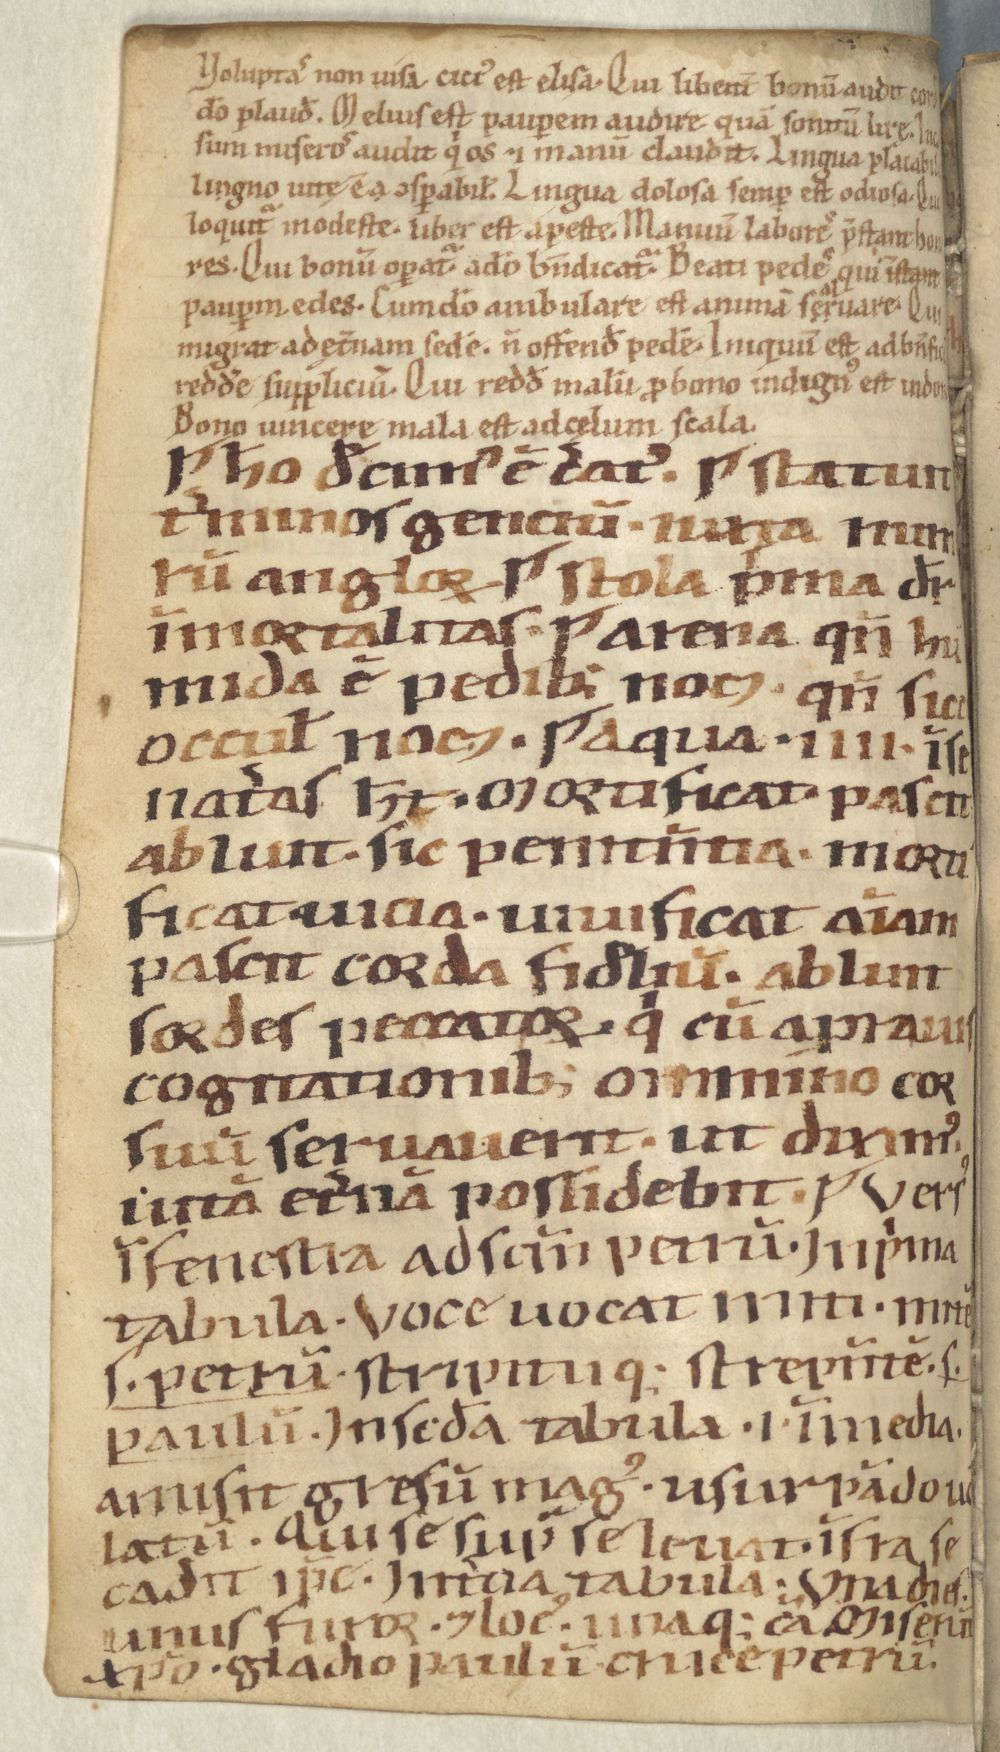 Voluptas non uisa cicius est elisa. Qui libent bonū audit cor
do plaud̄. Melius est pauperem audire quā sonitū lire.
sum miseros audit qͥ os ⁊ manū claudit. Lingua placabil
lingno uite ē ꝯparabil. Lingua dolosa semp est odiosa. Qui
loquit modeste. liber est a peste. Manuū labores pstant hono
res. Qui bonū opat. a do bndicat. Beati pedes qui instant
paupm edes. Cum do ambulare est animā seruare. Qui
migrat ad etnam sedē. n̄ offend̄ pedē. Iniquū est ad bn̄fic
redd̄e suppliciū. Qui redd̄ malū ꝓ bono indignꝰ est
Bono uincere mala est ad celum scala.
ho ē 
statuit
tͥminos genciū. iuxta num
rū anglor. stola pͥma dr
īmortalitas. arena qn̄ hu
mida ē pedibꝫ noc&. qn̄ sicc
occul noc&. aqua. iiii. ī se
naturas ht. Mortificat. pascit
abluit. sic penitn̄tia. morti
ficat uicia. uiuificat aīam
pascit corda fidliū. abluit
sordes peccator. qͥ cū a prauis
cogitationibꝫ omnino cor
suū seruauerit. ut diximꝰ.
uitā etnā possidebit. Versꝰ
ī fenestra ad scm̄ petrū. In pͥma
tabula. Voce uocat miti. mitē
s. petrū. strepituqꝫ strepn̄tē. s.
paulū. In scd̄a tabula. i. ī media.
amisit gresū magꝰ. usurpādo uo
latū. Qui se sup se leuat. īfra se
cadit ip̄e. In tͥcia tabula. Vna dies.
unus furor. ⁊ locꝰ. unaqꝫ cā. Miserū
xp̄o. gladio paulū cruce petrū.